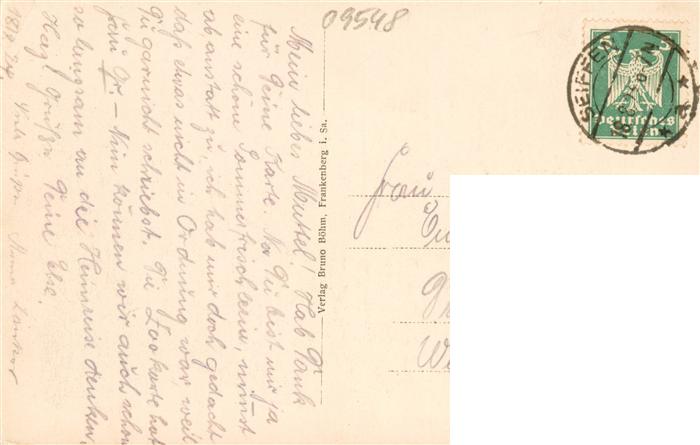 09548
Mein liebes Muttel! Hab Dank
für Deine Karte. Na Du bist mir ja
eine schöne Sommerfrischlerin, nimst
ab anstatt zu, ich hab mir doch gedacht
daß etwas nicht in Ordnung war, weil
Du garnicht schriebst. Die Karte hat
Frau – Nun können wir auch schon
so langsam an die Heimreise denken.
Herzl. Grüße Deine Else.
18.8.24.
Verlag Bruno Böhm, Frankenberg i. Sa.
Frau
SEIFFEN
5 5
Deutsches
Reich